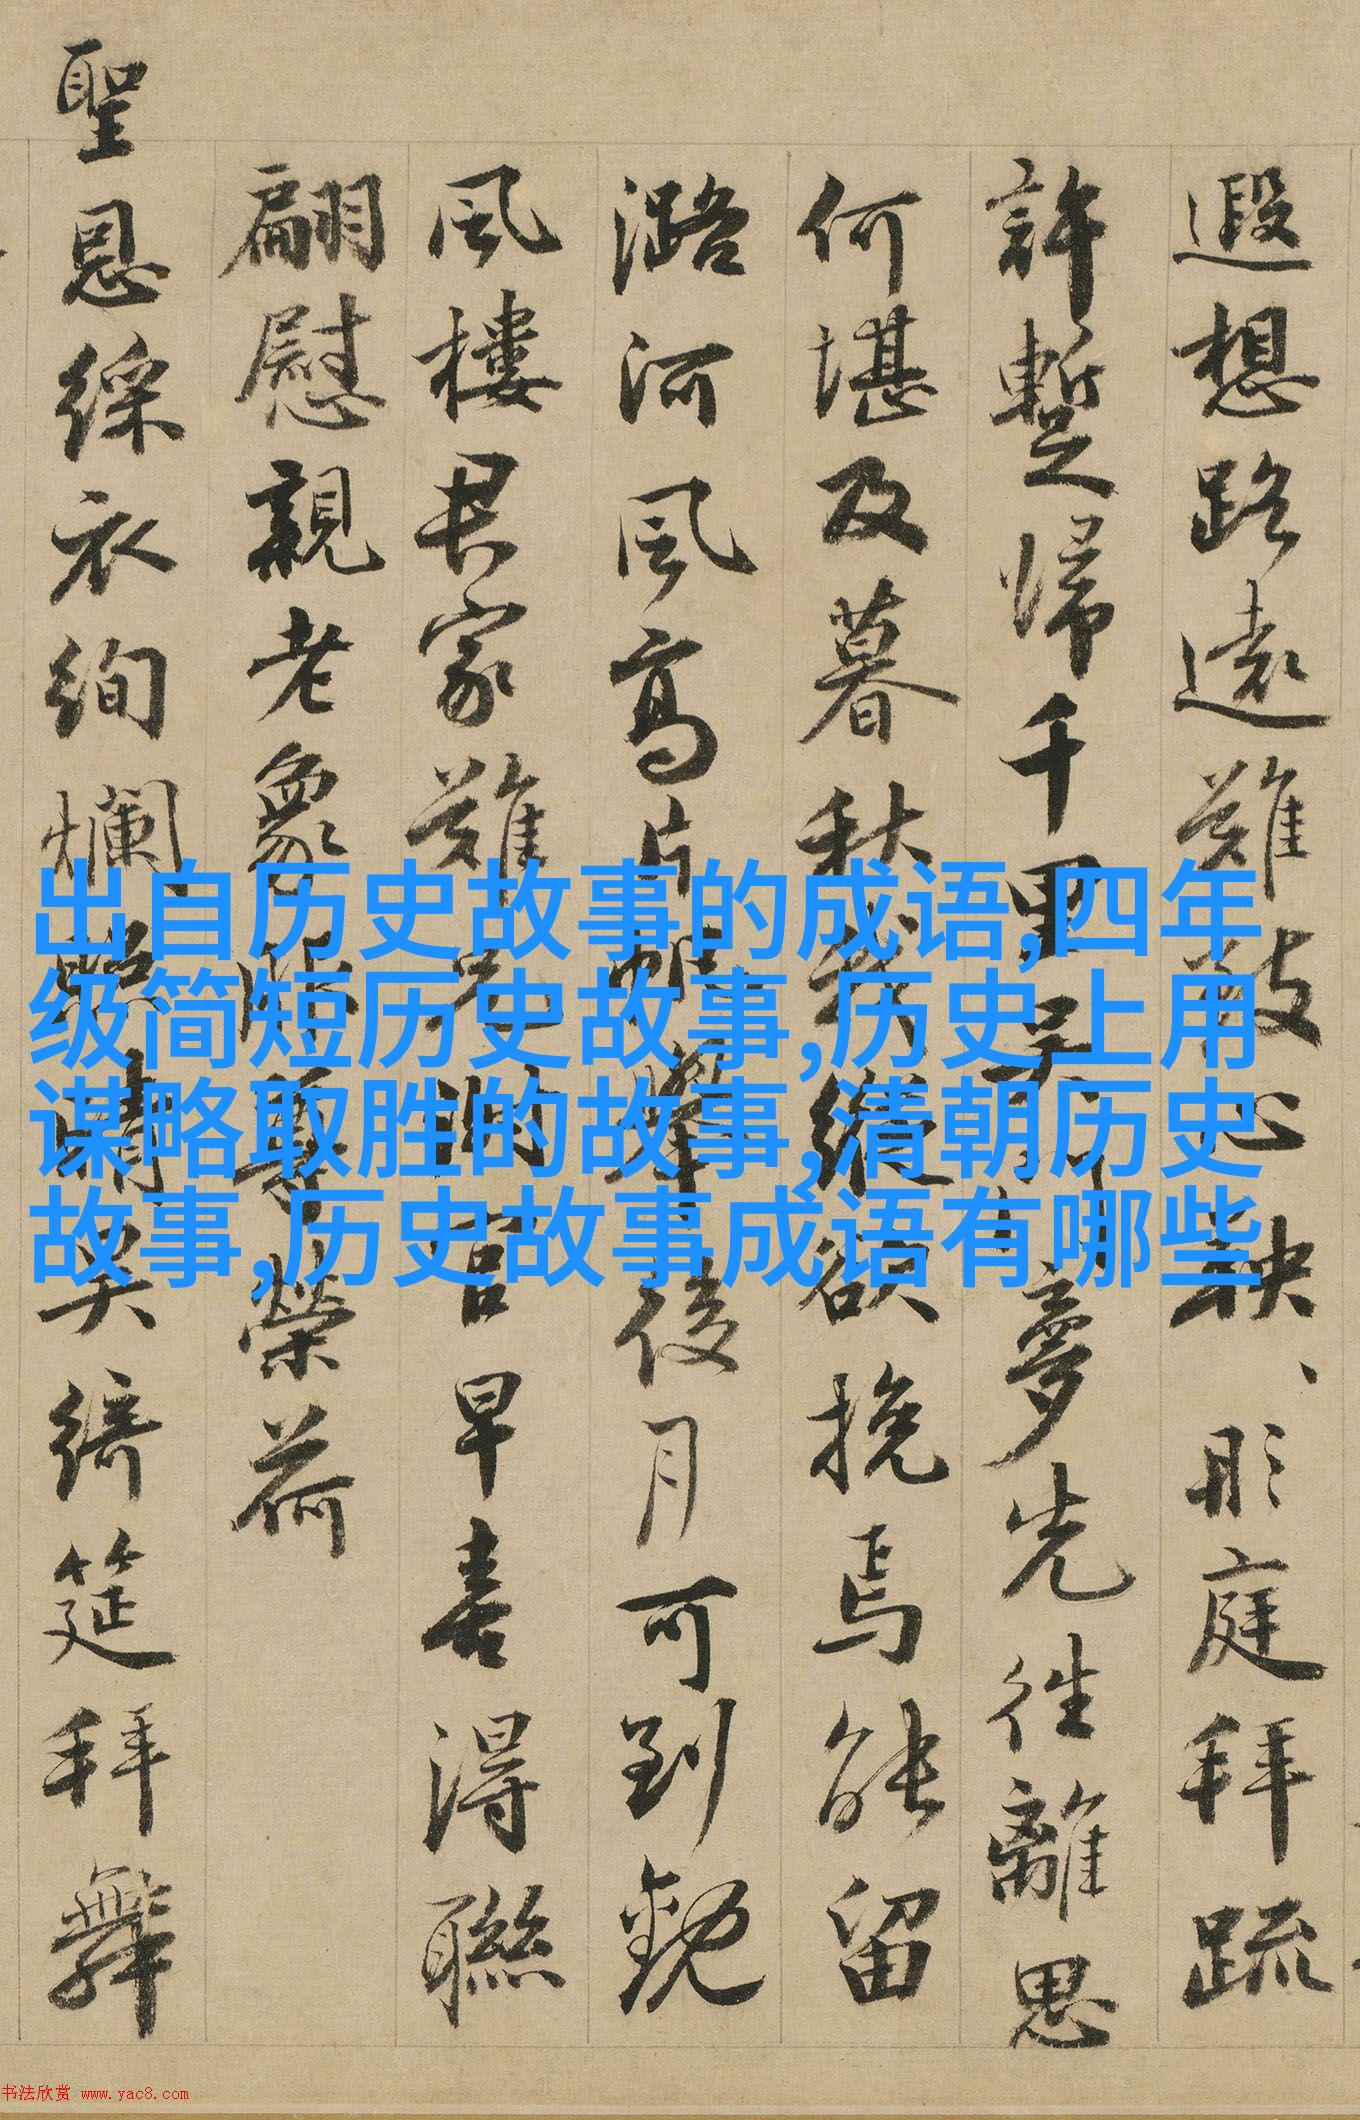 遐想路遠難致心軼、彤庭拜疏
許蹔歸千里
夢先往離思
何堪及暮秋
縱欲挽焉能留
潞河風高片帆
後月可到觀
風樓君家難
早喜得聯
翩慰親老
尊榮荷
聖恩綵衣絢爛
綺筵拜舞
出自历史故事的成语,四年
级简短历史故事,历史上用
谋略取胜的故事,清朝历史
故事,历史故事成语有哪些
书法欣赏 www.yac8.com